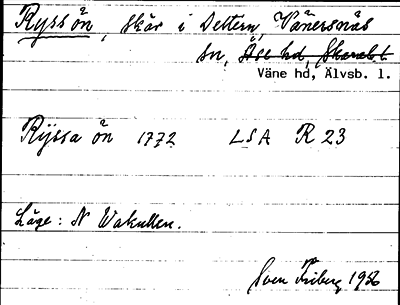 Ryssön, skär i Dettern, Vänersnäs
sn, Åse hd, Skarab. l.
Väne hd, Älvsb. l.
Ryssa ön 1772 LSA R 23
Läge: N Wakullen.
Sven Friberg 1956